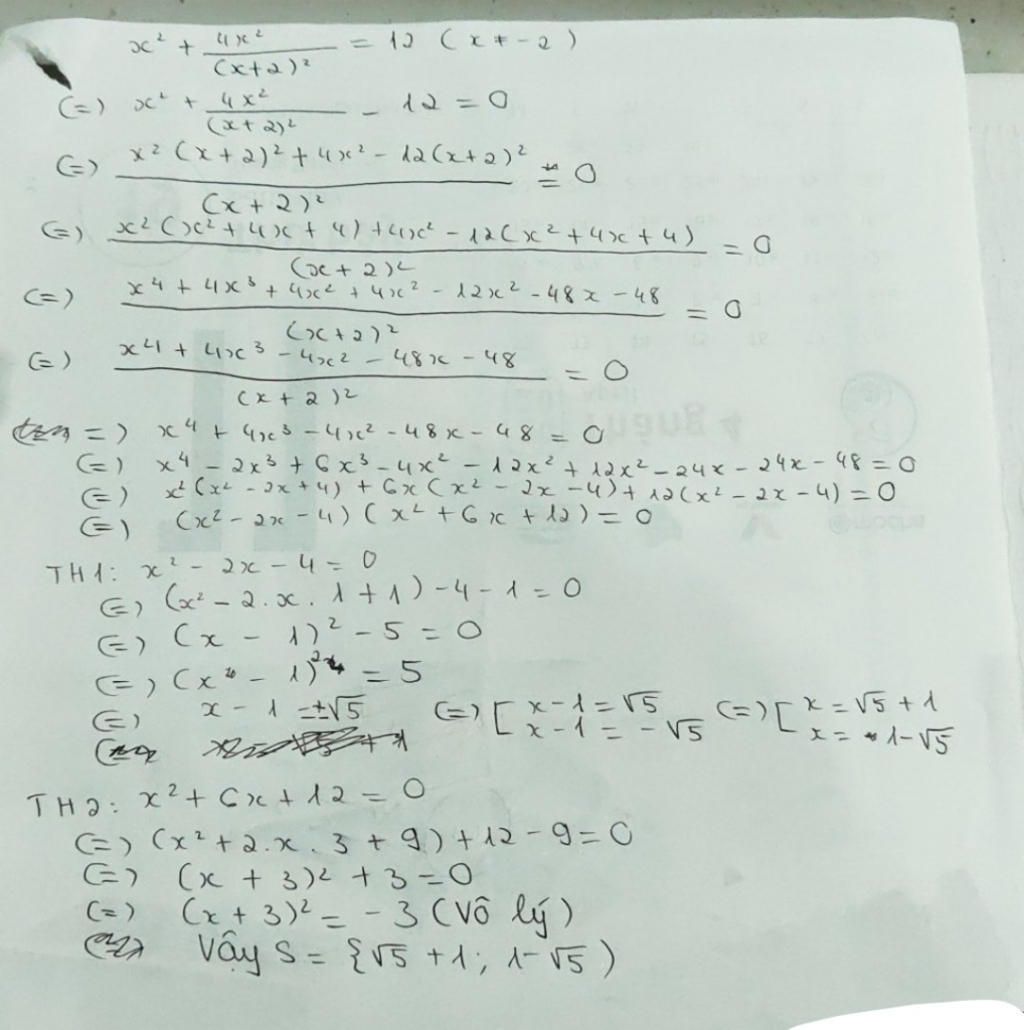 x² + 4x²/(x+2)² = 12 (x ≠ -2)
(=) x² + 4x²/(x+2)² - 12 = 0
(=) (x²(x+2)² + 4x² - 12(x+2)²)/(x+2)² = 0
(=) (x²(x² + 4x + 4) + 4x² - 12(x² + 4x + 4))/(x+2)² = 0
(=) (x⁴ + 4x³ + 4x² + 4x² - 12x² - 48x - 48)/(x+2)² = 0
(=) (x⁴ + 4x³ - 4x² - 48x - 48)/(x+2)² = 0
=) x⁴ + 4x³ - 4x² - 48x - 48 = 0
(=) x⁴ - 2x³ + 6x³ - 4x² - 12x² + 12x² - 24x - 24x - 48 = 0
(=) x²(x² - 2x + 4) + 6x(x² - 2x - 4) + 12(x² - 2x - 4) = 0
(=) (x² - 2x - 4)(x² + 6x + 12) = 0
TH1: x² - 2x - 4 = 0
(=) (x² - 2.x.1 + 1) - 4 - 1 = 0
(=) (x - 1)² - 5 = 0
(=) (x - 1)² = 5
(=) x - 1 = ±√5 (=) [ x - 1 = √5 (=) [ x = √5 + 1
x - 1 = -√5 x = 1 - √5
TH2: x² + 6x + 12 = 0
(=) (x² + 2.x.3 + 9) + 12 - 9 = 0
(=) (x + 3)² + 3 = 0
(=) (x + 3)² = -3 (Vô lý)
Vậy S = {√5 + 1; 1 - √5)